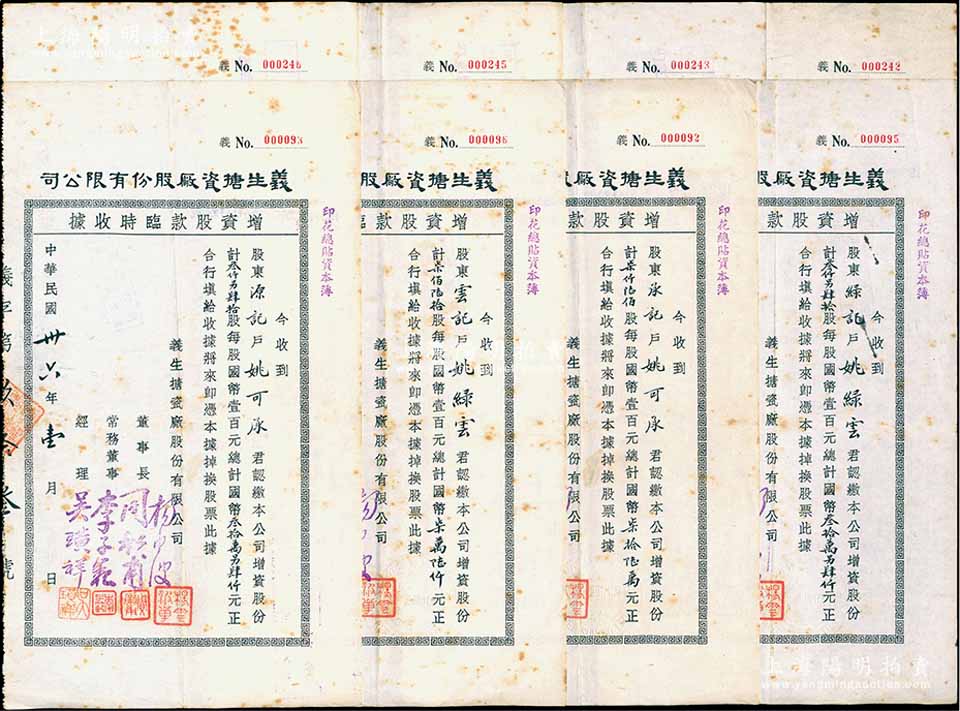 上海陽明拍賣
義 No. 000246
義 No. 000245
義 No. 000243
義 No. 000242
義 No. 000093
義 No. 000096
義 No. 000092
義 No. 000095
義生搪瓷廠股份有限公司
增資股款臨時收據
印花總貼資本簿
今收到
股東源記戶姚可承君認繳本公司增資股份
計叁仟另肆拾股每股國幣壹百元總計國幣叁拾萬另肆仟元正
合行填給收據將來卽憑本據掉換股票此據
義生搪瓷廠股份有限公司
董事長
常務董事 李子範
經理 吳瑛祥
中華民國卅六年壹月 日
義生搪瓷廠股
增資股款臨
印花總貼資本簿
今收到
股東雲記戶姚綠雲君認繳本公司增資股份
計柒佰陸拾股每股國幣壹百元總計國幣柒萬陸仟元正
合行填給收據將來卽憑本據掉換股票此據
義生搪瓷廠股份有限公司
義生搪瓷廠
增資股款
印花總貼資本簿
今收到
股東承記戶姚可承君認繳本公司增資股份
計柒仟陸佰股每股國幣壹百元總計國幣柒拾陸萬元正
合行填給收據將來卽憑本據掉換股票此據
義生搪瓷廠股份有限公司
義生搪瓷廠股
增資股款
印花總貼資本簿
今收到
股東綠記戶姚綠雲君認繳本公司增資股份
計叁仟另肆拾股每股國幣壹百元總計國幣叁拾萬另肆仟元正
合行填給收據將來卽憑本據掉換股票此據
義生搪瓷廠股份有限公司
上海陽明拍賣
www.yangmingauction.com